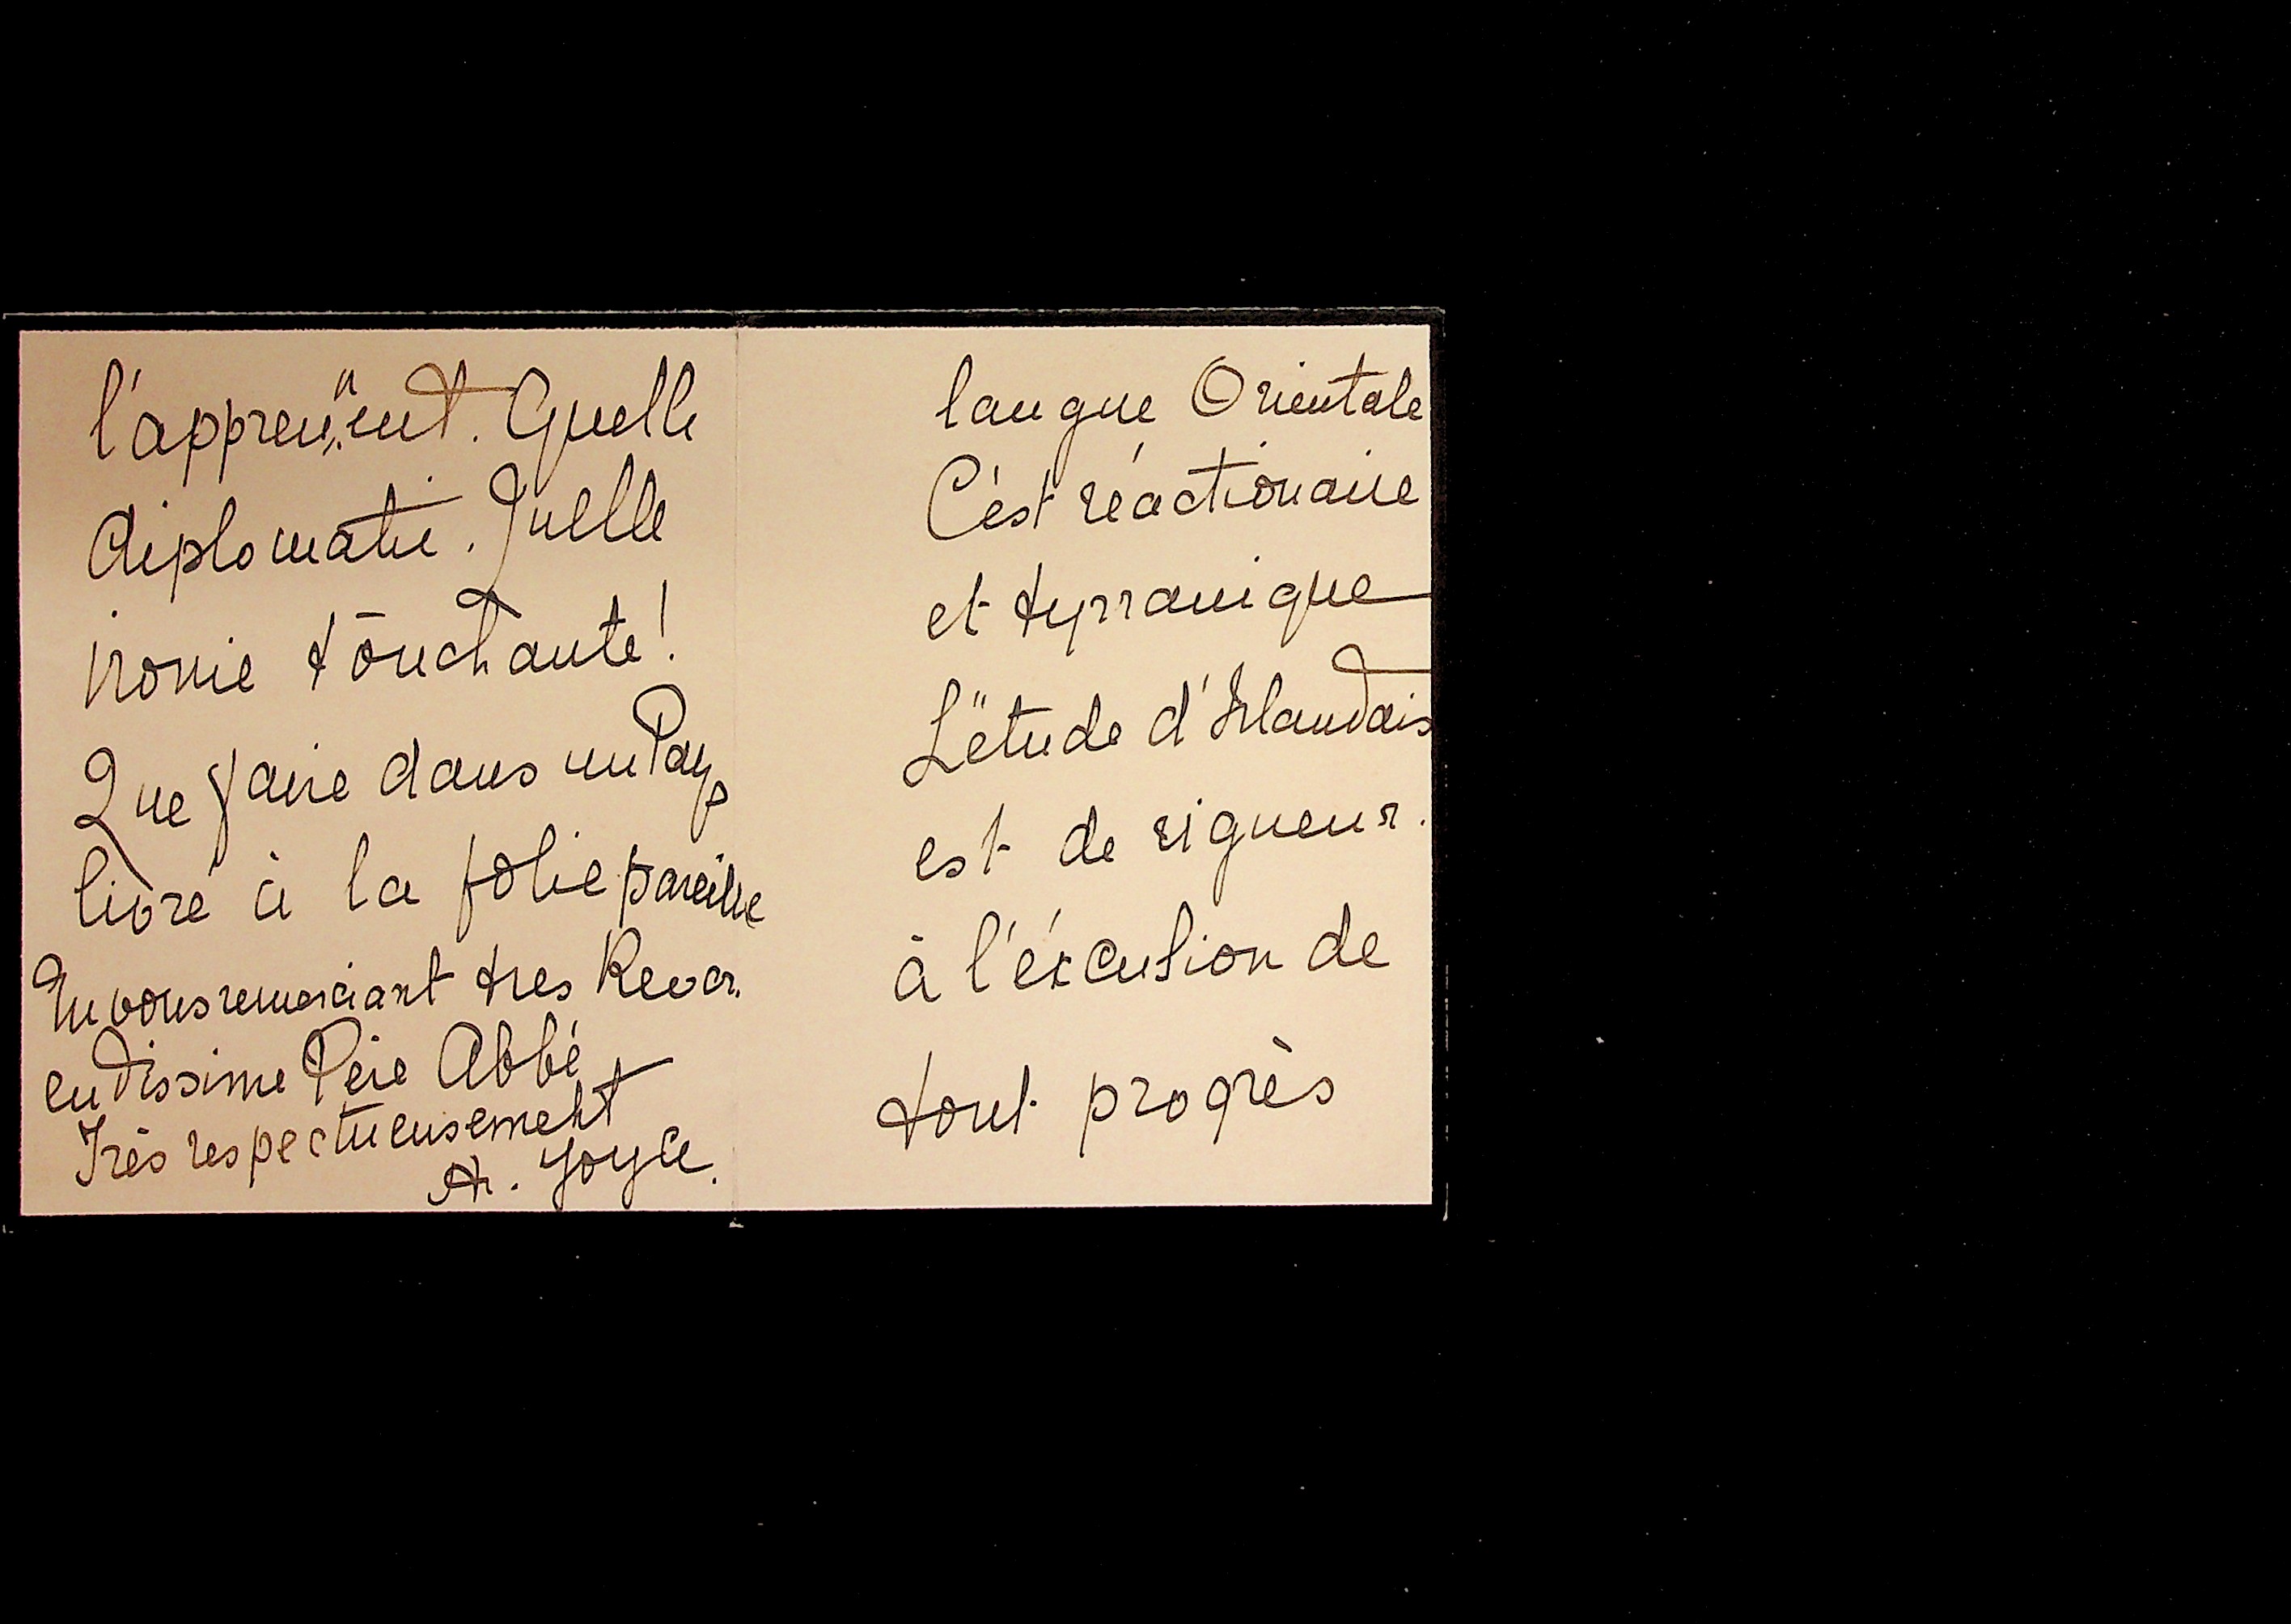 l'apprennent. Quelle
diplomatie. Quelle
ironie touchante!
Que faire dans un Pays
livré à la folie pareille
En vous remerciant tres Rever.
endissime Père Abbé
Très respectueusement
Joyce.
langue Orientale
C'est réactionaire
et tyrranique
L'étude d'Irlandais
est de rigueur.
à l'éxcusion de
tout progrès